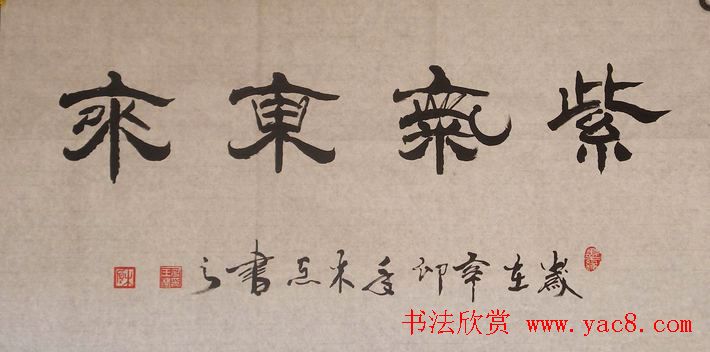 紫氣東來
歲在辛卯米書
书法欣赏 www.yac8.com